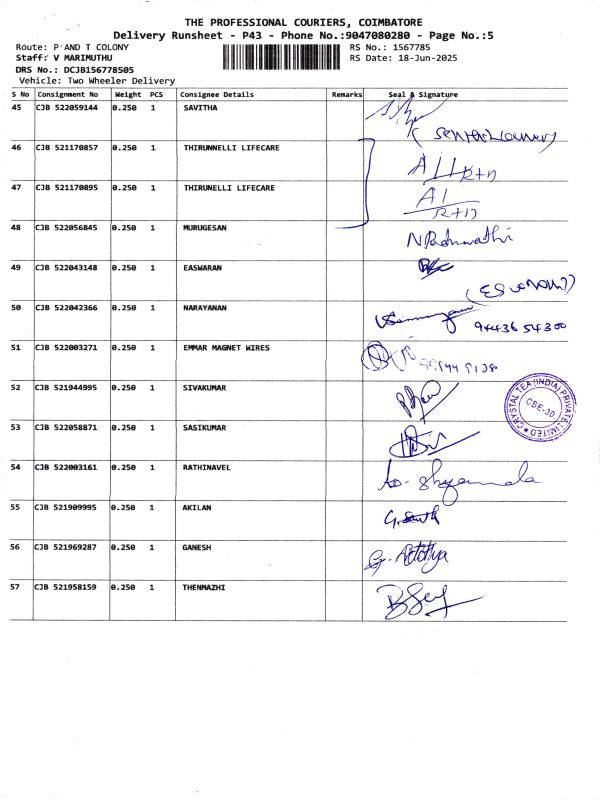 THE PROFESSIONAL COURIERS, COIMBATORE
Delivery Runsheet - P43 - Phone No.:9047080280 - Page No.:5
Route: P AND T COLONY RS No.: 1567785
Staff: V MARIMUTHU RS Date: 18-Jun-2025
DRS No.: DCJB156778505
Vehicle: Two Wheeler Delivery
S No Consignment No Weight PCS Consignee Details Remarks Seal & Signature
45 CJB 522059144 0.250 1 SAVITHA
46 CJB 521170857 0.250 1 THIRUNNELLI LIFECARE
47 CJB 521170895 0.250 1 THIRUNELLI LIFECARE
48 CJB 522056845 0.250 1 MURUGESAN
49 CJB 522043148 0.250 1 EASWARAN
50 CJB 522042366 0.250 1 NARAYANAN 94436 54300
51 CJB 522003271 0.250 1 EMMAR MAGNET WIRES
52 CJB 521944995 0.250 1 SIVAKUMAR
CRYSTAL TEA (INDIA) PRIVATE LIMITED
CBE-30.
53 CJB 522058871 0.250 1 SASIKUMAR
54 CJB 522003161 0.250 1 RATHINAVEL Shyamala
55 CJB 521909995 0.250 1 AKILAN
56 CJB 521969287 0.250 1 GANESH
57 CJB 521958159 0.250 1 THENMAZHI